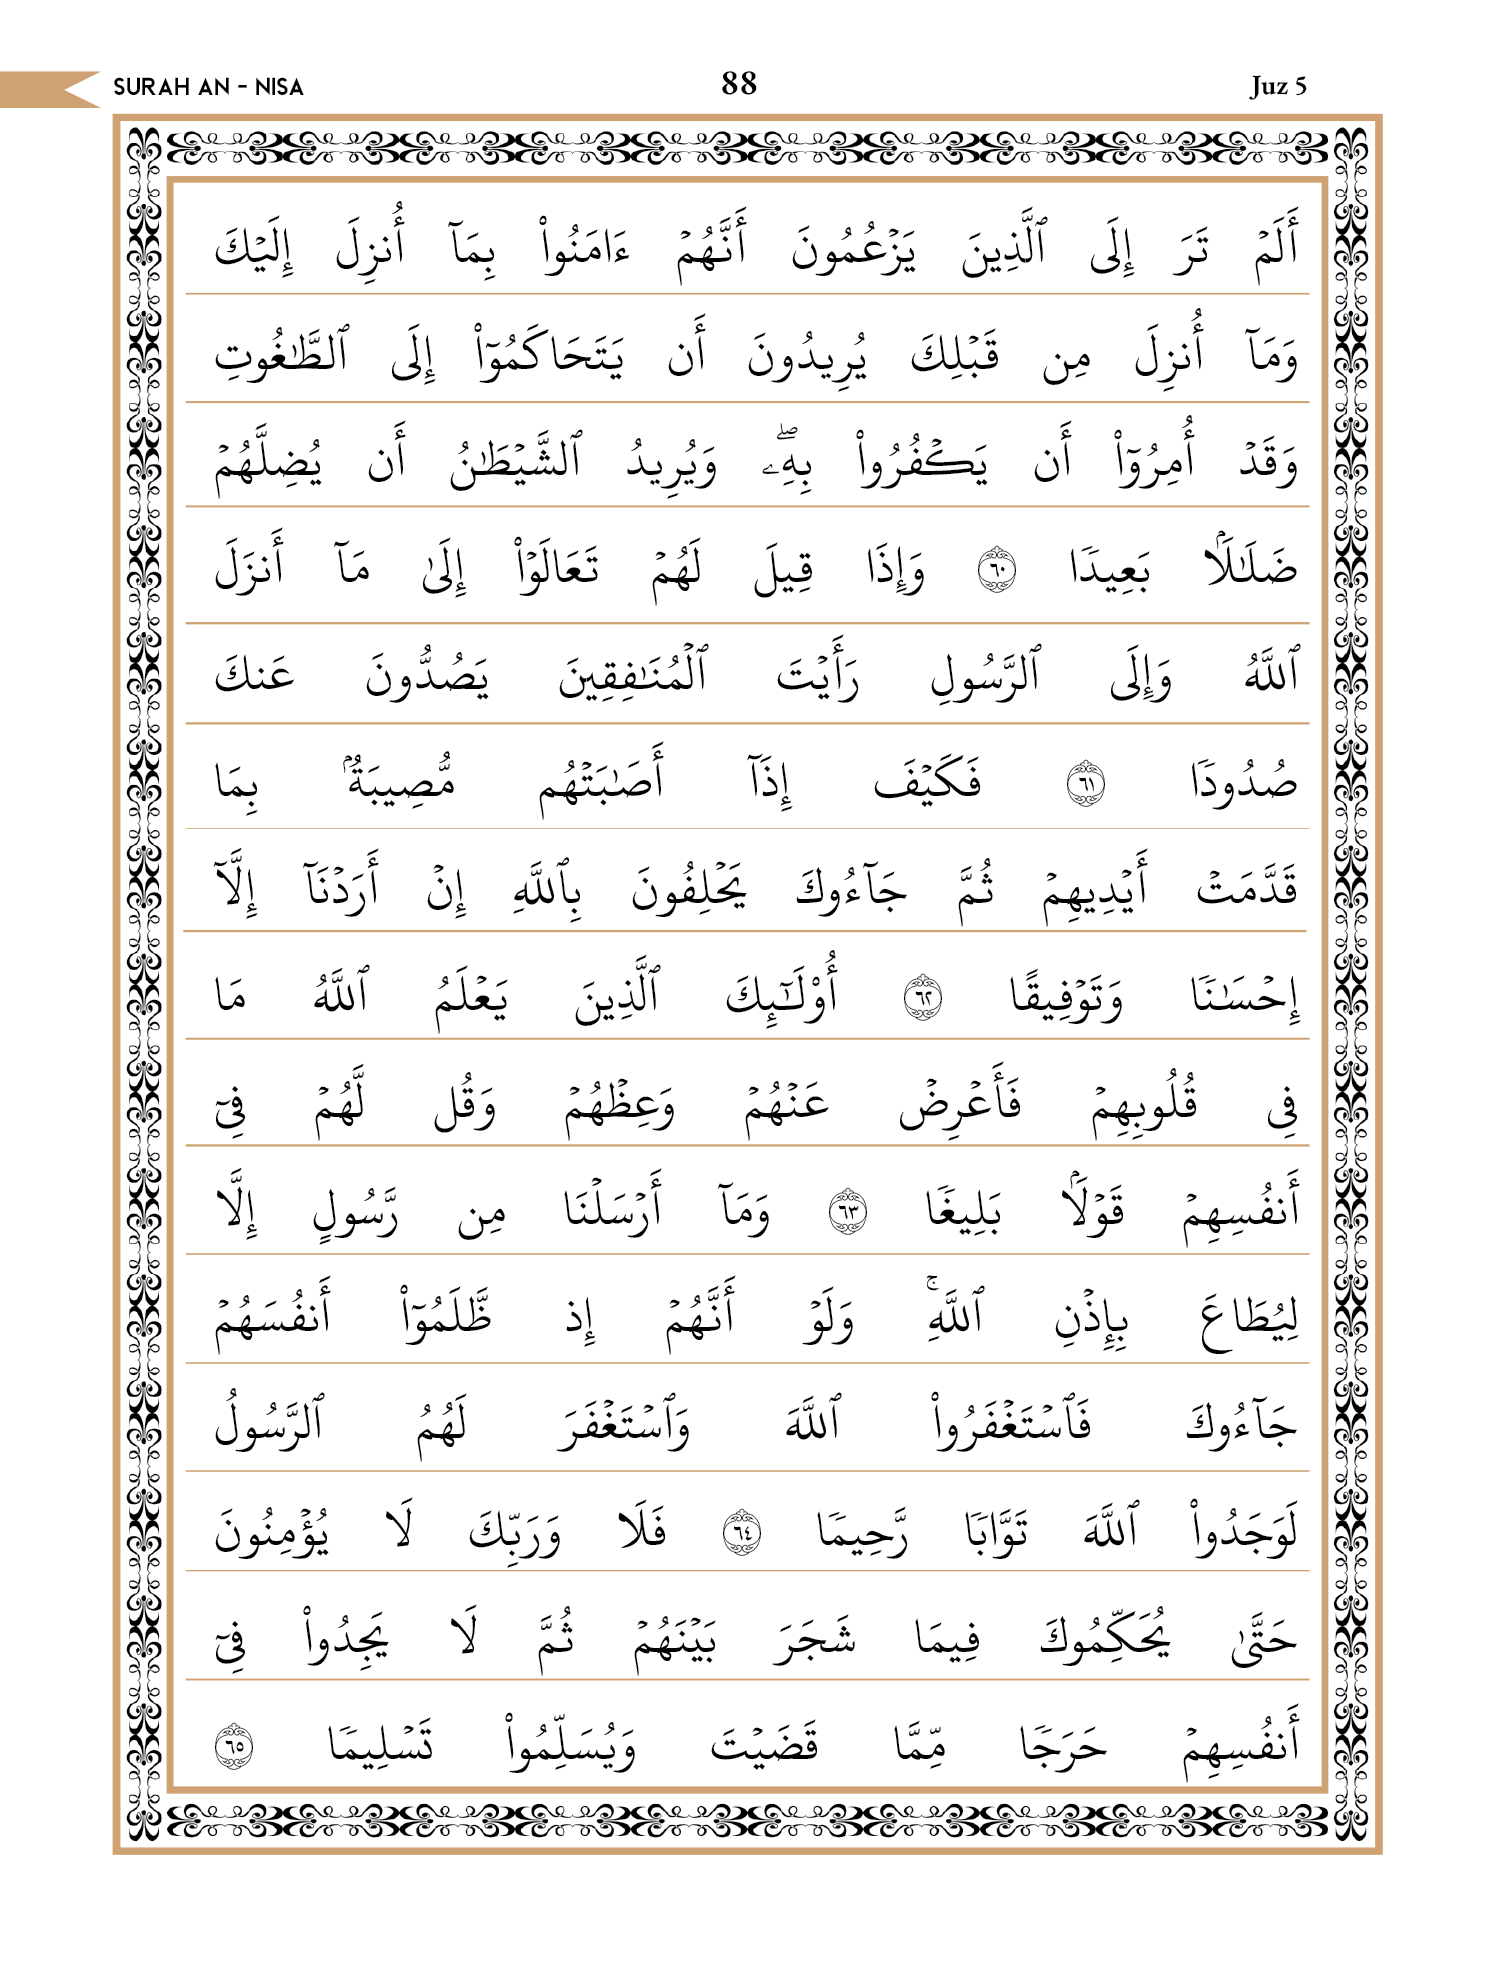 SURAH AN - NISA 88 Juz 5
أَلَمۡ تَرَ إِلَى ٱلَّذِينَ يَزۡعُمُونَ أَنَّهُمۡ ءَامَنُواْ بِمَآ أُنزِلَ إِلَيۡكَ
وَمَآ أُنزِلَ مِن قَبۡلِكَ يُرِيدُونَ أَن يَتَحَاكَمُوٓاْ إِلَى ٱلطَّٰغُوتِ
وَقَدۡ أُمِرُوٓاْ أَن يَكۡفُرُواْ بِهِۦۖ وَيُرِيدُ ٱلشَّيۡطَٰنُ أَن يُضِلَّهُمۡ
ضَلَٰلَۢا بَعِيدٗا ٦٠ وَإِذَا قِيلَ لَهُمۡ تَعَالَوۡاْ إِلَىٰ مَآ أَنزَلَ
ٱللَّهُ وَإِلَى ٱلرَّسُولِ رَأَيۡتَ ٱلۡمُنَٰفِقِينَ يَصُدُّونَ عَنكَ
صُدُودٗا ٦١ فَكَيۡفَ إِذَآ أَصَٰبَتۡهُم مُّصِيبَةُۢ بِمَا
قَدَّمَتۡ أَيۡدِيهِمۡ ثُمَّ جَآءُوكَ يَحۡلِفُونَ بِٱللَّهِ إِنۡ أَرَدۡنَآ إِلَّآ
إِحۡسَٰنٗا وَتَوۡفِيقًا ٦٢ أُوْلَٰٓئِكَ ٱلَّذِينَ يَعۡلَمُ ٱللَّهُ مَا
فِي قُلُوبِهِمۡ فَأَعۡرِضۡ عَنۡهُمۡ وَعِظۡهُمۡ وَقُل لَّهُمۡ فِيٓ
أَنفُسِهِمۡ قَوۡلَۢا بَلِيغٗا ٦٣ وَمَآ أَرۡسَلۡنَا مِن رَّسُولٍ إِلَّا
لِيُطَاعَ بِإِذۡنِ ٱللَّهِۚ وَلَوۡ أَنَّهُمۡ إِذ ظَّلَمُوٓاْ أَنفُسَهُمۡ
جَآءُوكَ فَٱسۡتَغۡفَرُواْ ٱللَّهَ وَٱسۡتَغۡفَرَ لَهُمُ ٱلرَّسُولُ
لَوَجَدُواْ ٱللَّهَ تَوَّابٗا رَّحِيمٗا ٦٤ فَلَا وَرَبِّكَ لَا يُؤۡمِنُونَ
حَتَّىٰ يُحَكِّمُوكَ فِيمَا شَجَرَ بَيۡنَهُمۡ ثُمَّ لَا يَجِدُواْ فِيٓ
أَنفُسِهِمۡ حَرَجٗا مِّمَّا قَضَيۡتَ وَيُسَلِّمُواْ تَسۡلِيمٗا ٦٥